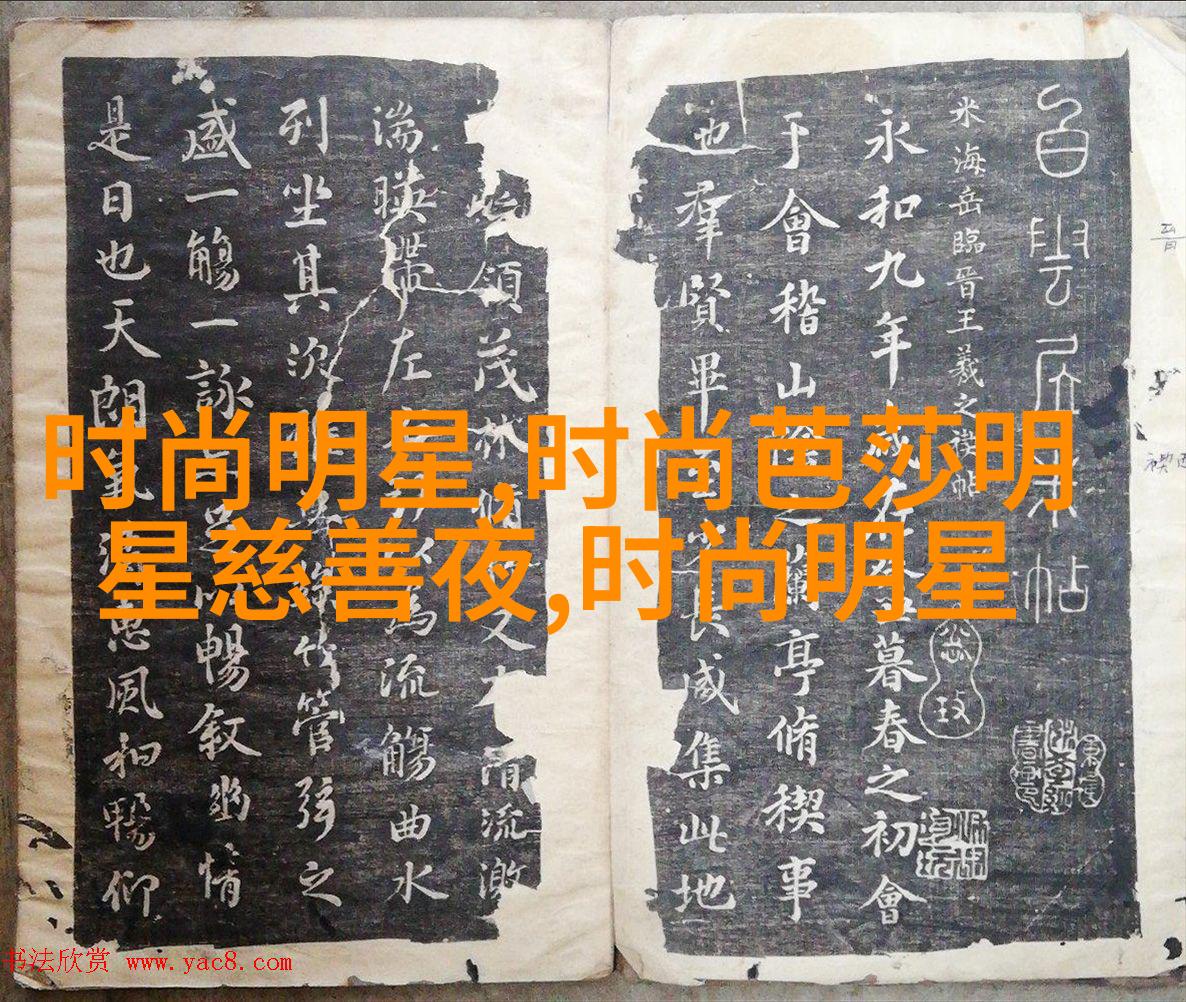 时尚明星,时尚芭莎明
星慈善夜,时尚明星
米海岳臨晉王羲之禊帖
永和九年歲在丑暮春之初會
于會稽山陰之蘭亭脩稧事
也羣賢畢至少長咸集此地
領茂林脩又清流激
湍暎帶左右引以為流觴曲水
列坐其次雖無絲竹管弦之
盛一觴一詠亦足以暢敘幽情
是日也天朗氣清惠風和暢仰
书法欣赏 www.yac8.com